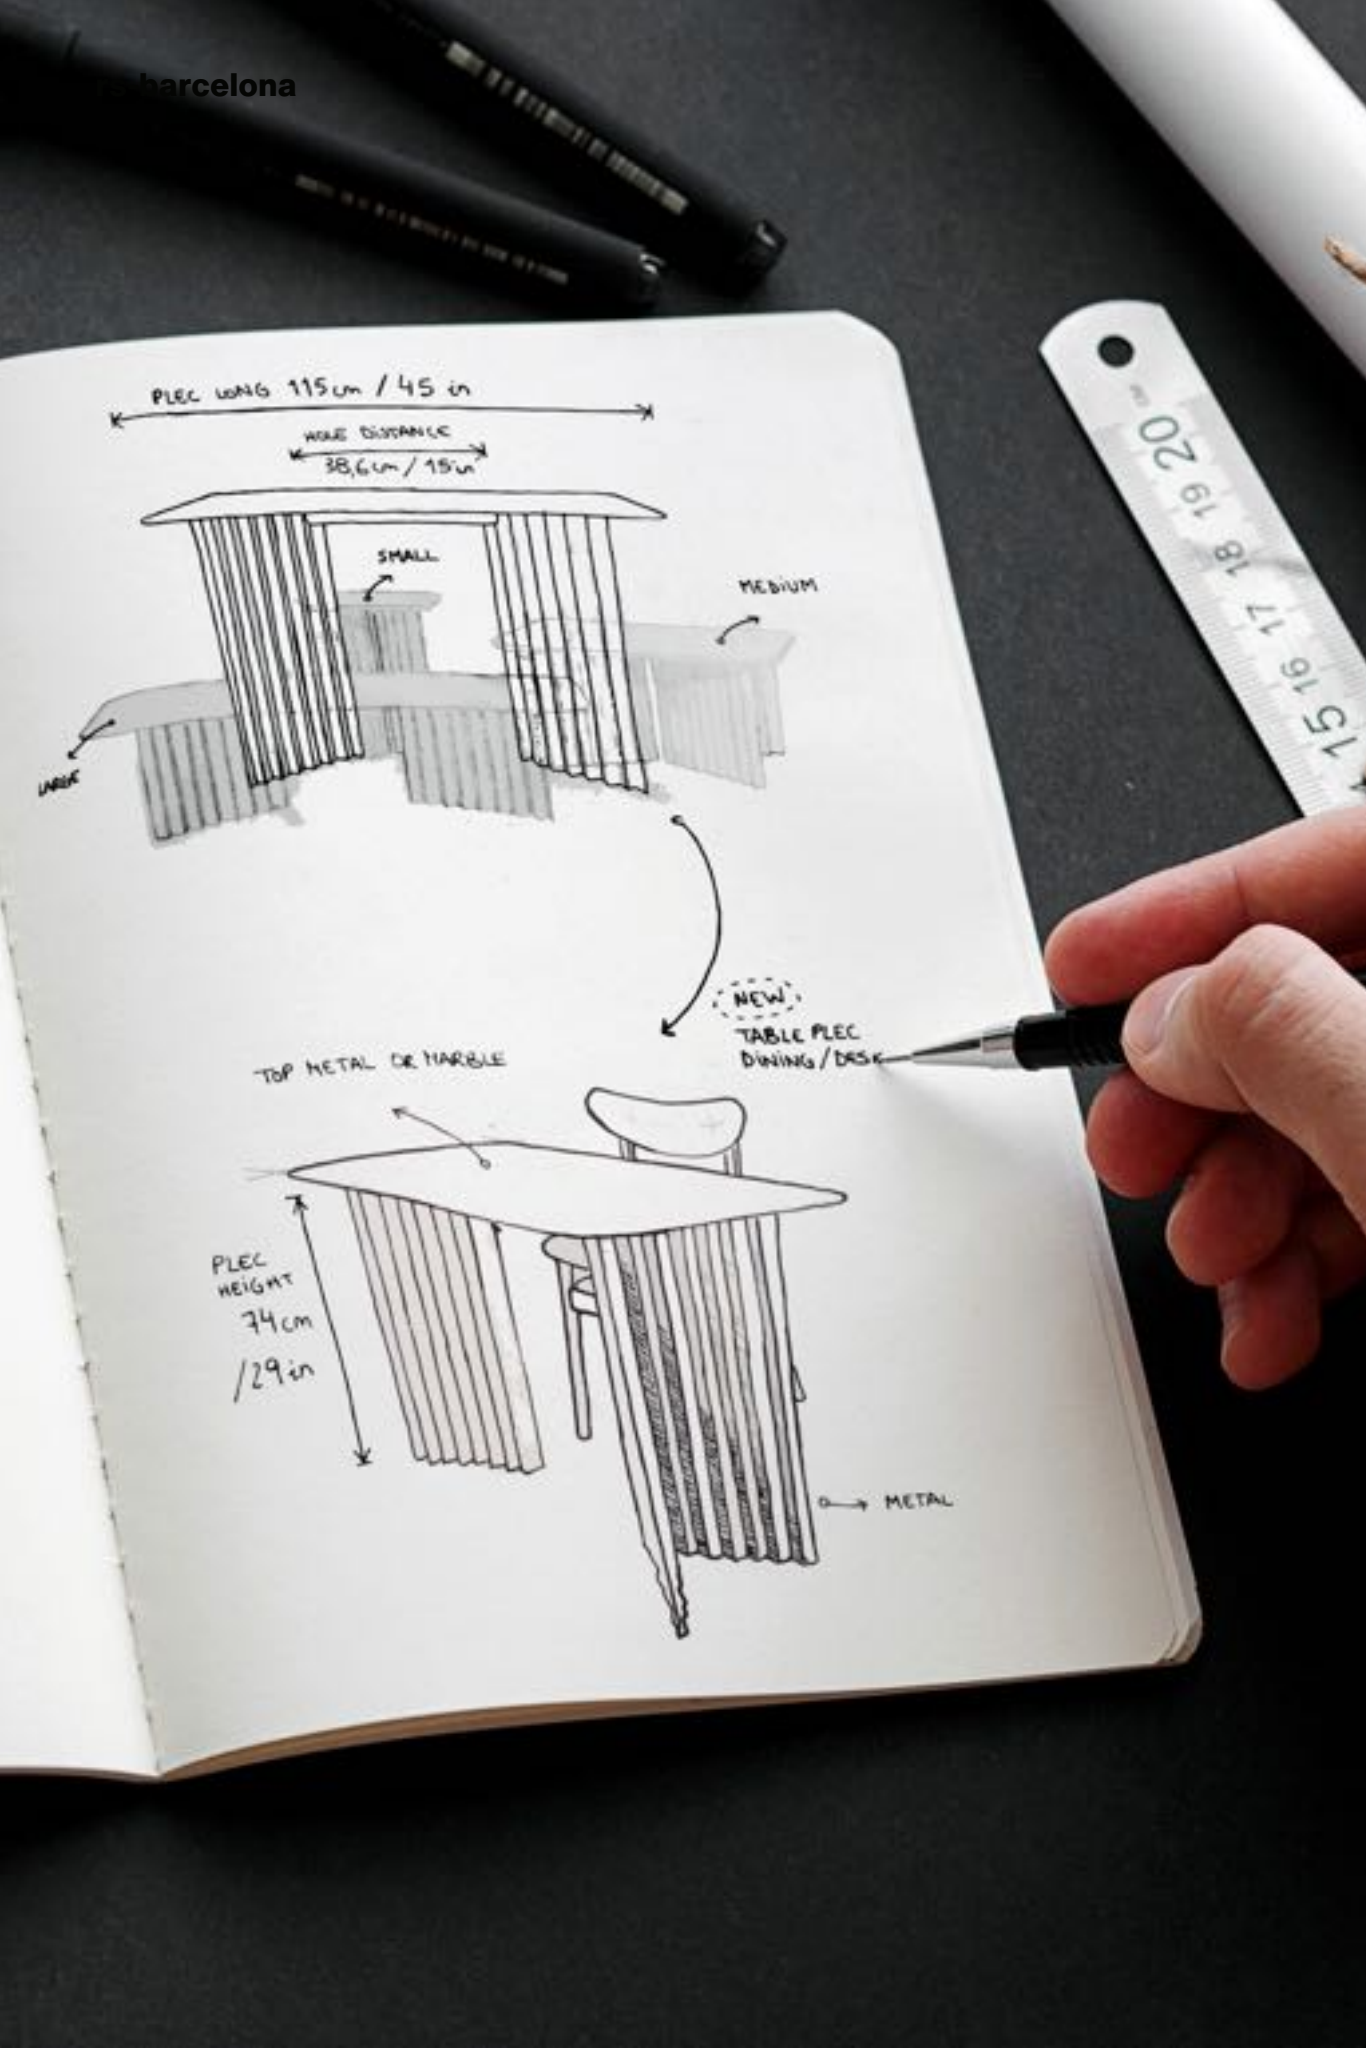 barcelona
PLEC LONG 115cm / 45 in
HOLE DISTANCE
38,6cm / 15in
SMALL
MEDIUM
LARGE
NEW
TABLE PLEC
DINING/DESK
TOP METAL OR MARBLE
PLEC
HEIGHT
74cm
/29in
METAL
20
19
18
17
16
15